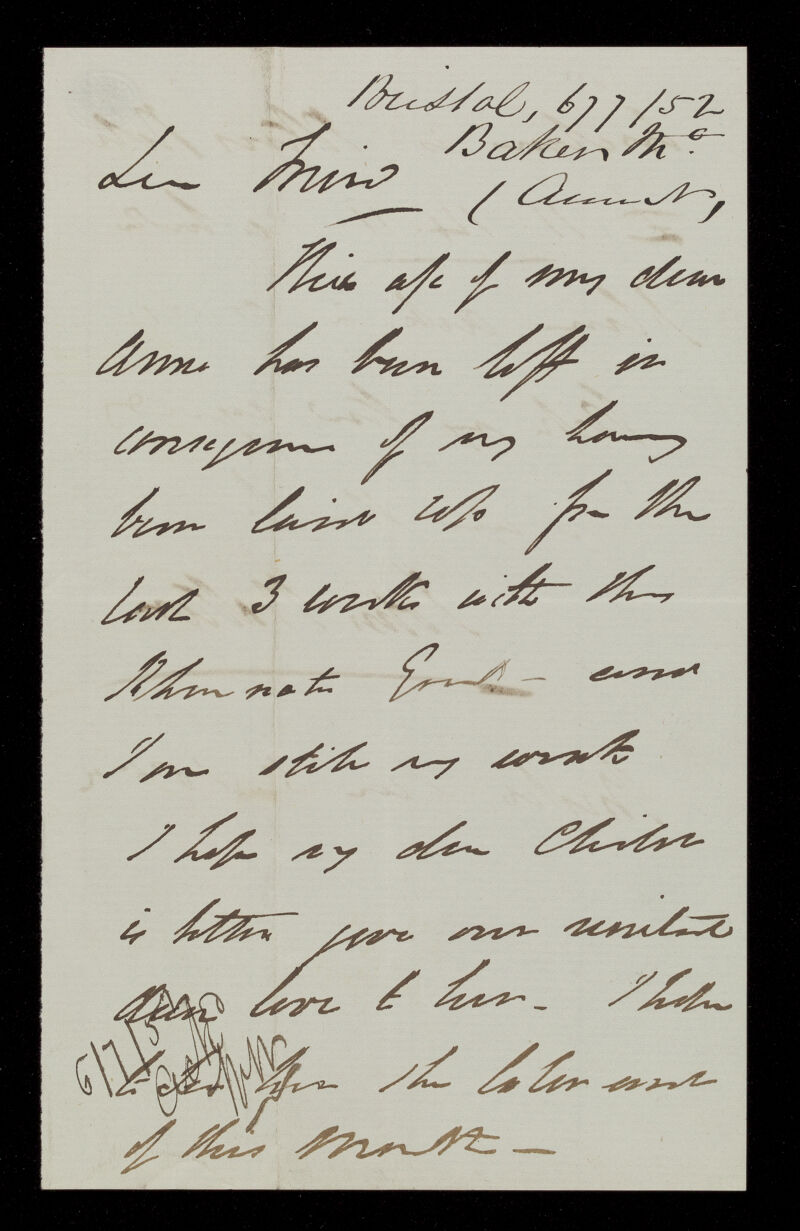 Bristol, 6/7/52
Baker Mr.
Dear Friend (Acount,
This a/c of my dear
Anne has been left in
consequence of my having
been laid up for the
last 3 weeks with the
Rheumatic Gout - and
I am still very weak
I hope my dear Child
is better give our united
dear love to her - I hope
to her the later end
of this Month -
6/7/52